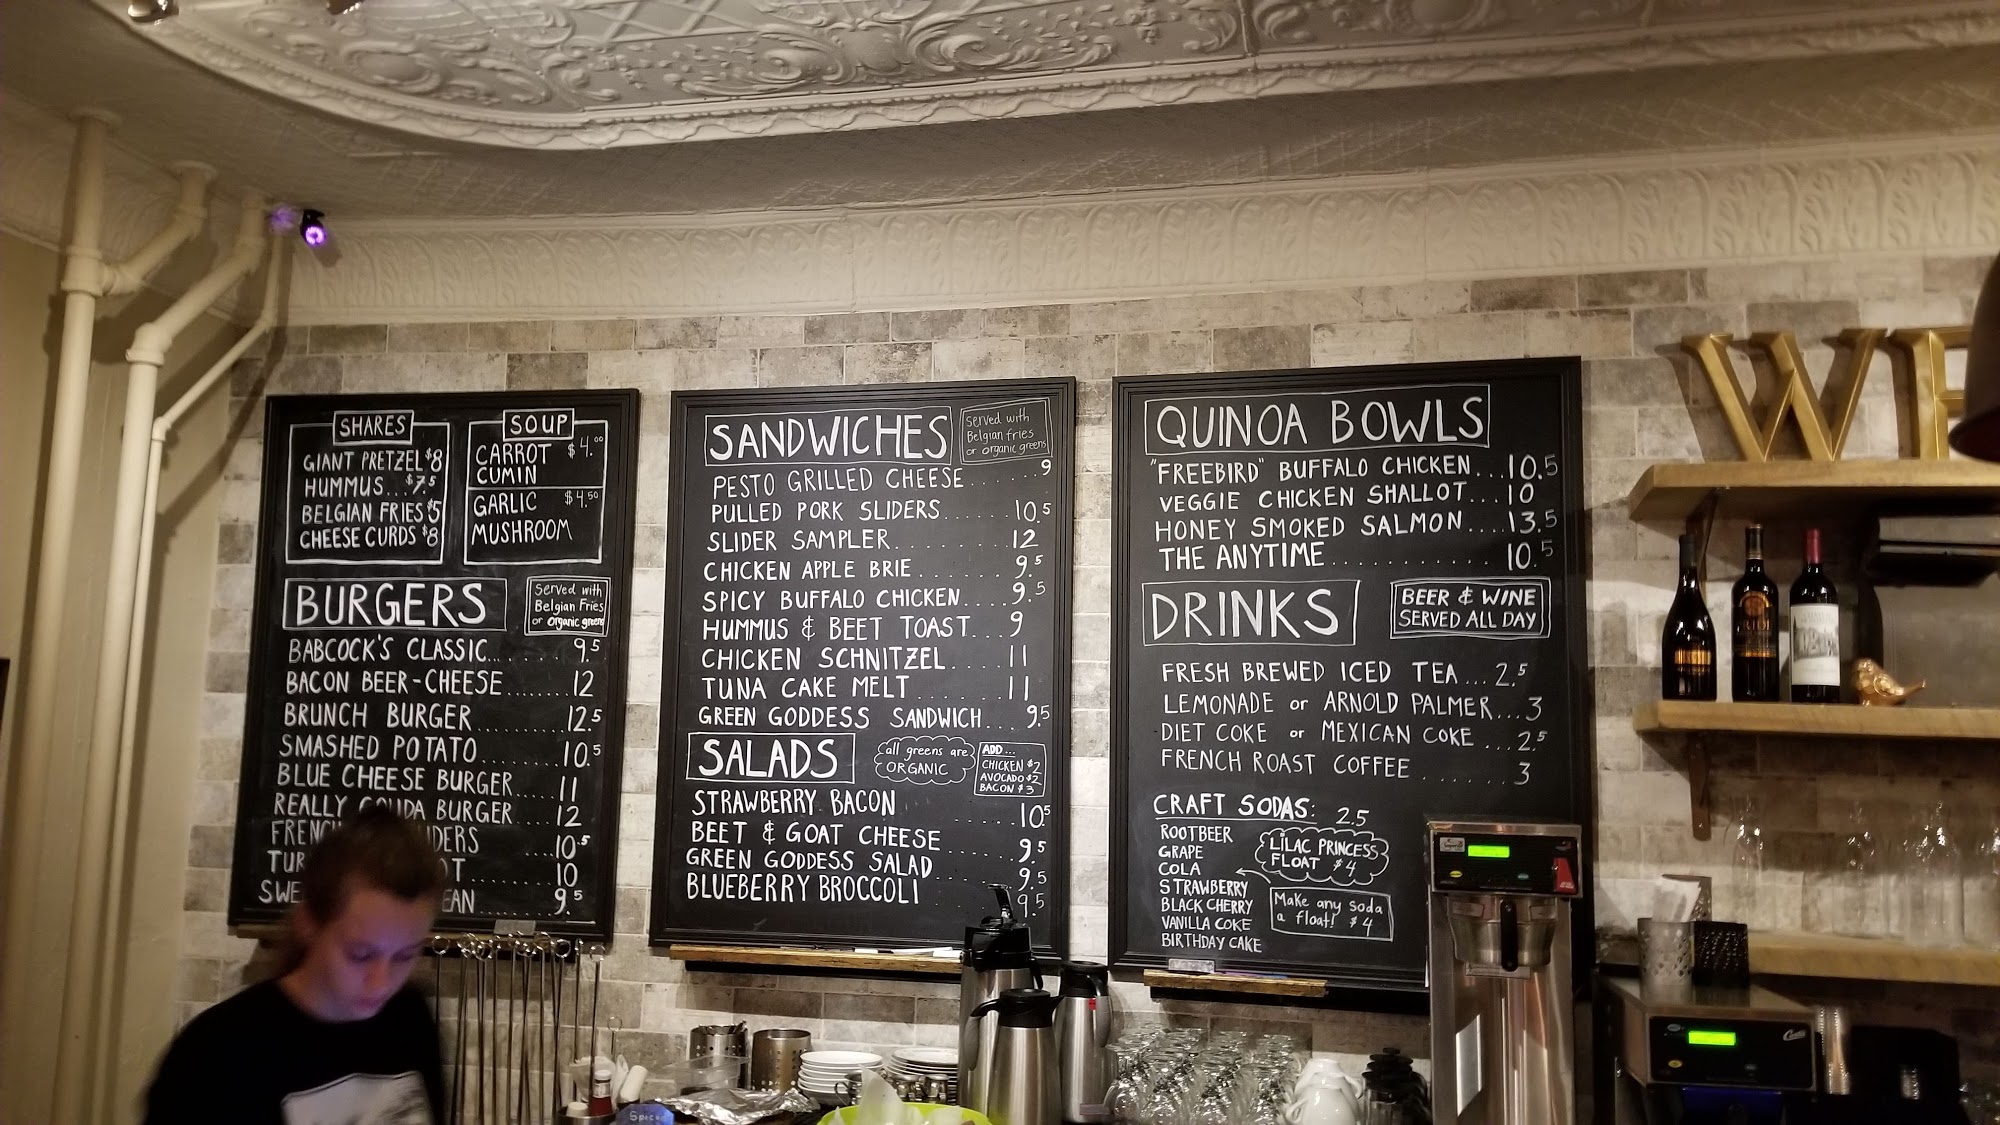 SHARES
GIANT PRETZEL $8
HUMMUS... $7.5
BELGIAN FRIES $5
CHEESE CURDS $8
SOUP
CARROT $4.00
CUMIN
GARLIC $4.50
MUSHROOM
BURGERS
Served with
Belgian Fries
or Organic greens
BABCOCK'S CLASSIC........ 9.5
BACON BEER-CHEESE....... 12
BRUNCH BURGER.......... 12.5
SMASHED POTATO......... 10.5
BLUE CHEESE BURGER.... 11
REALLY GOUDA BURGER.... 12
FRENCH .... 10.5
10
9.5
SANDWICHES
Served with
Belgian fries
or organic greens
PESTO GRILLED CHEESE....... 9
PULLED PORK SLIDERS....... 10.5
SLIDER SAMPLER......... 12
CHICKEN APPLE BRIE....... 9.5
SPICY BUFFALO CHICKEN.... 9.5
HUMMUS & BEET TOAST... 9
CHICKEN SCHNITZEL..... 11
TUNA CAKE MELT........ 11
GREEN GODDESS SANDWICH... 9.5
SALADS
all greens are
ORGANIC
ADD...
CHICKEN $2
AVOCADO $2
BACON $3
STRAWBERRY BACON ...... 10.5
BEET & GOAT CHEESE ...... 9.5
GREEN GODDESS SALAD ...... 9.5
BLUEBERRY BROCCOLI ...... 9.5
QUINOA BOWLS
"FREEBIRD" BUFFALO CHICKEN...10.5
VEGGIE CHICKEN SHALLOT...10
HONEY SMOKED SALMON....13.5
THE ANYTIME........... 10.5
DRINKS
BEER & WINE
SERVED ALL DAY
FRESH BREWED ICED TEA... 2.5
LEMONADE or ARNOLD PALMER...3
DIET COKE or MEXICAN COKE ...2.5
FRENCH ROAST COFFEE ....... 3
CRAFT SODAS: 2.5
ROOTBEER
GRAPE
COLA
STRAWBERRY
BLACK CHERRY
VANILLA COKE
BIRTHDAY CAKE
LILAC PRINCESS
FLOAT $4
Make any soda
a float! $4
W